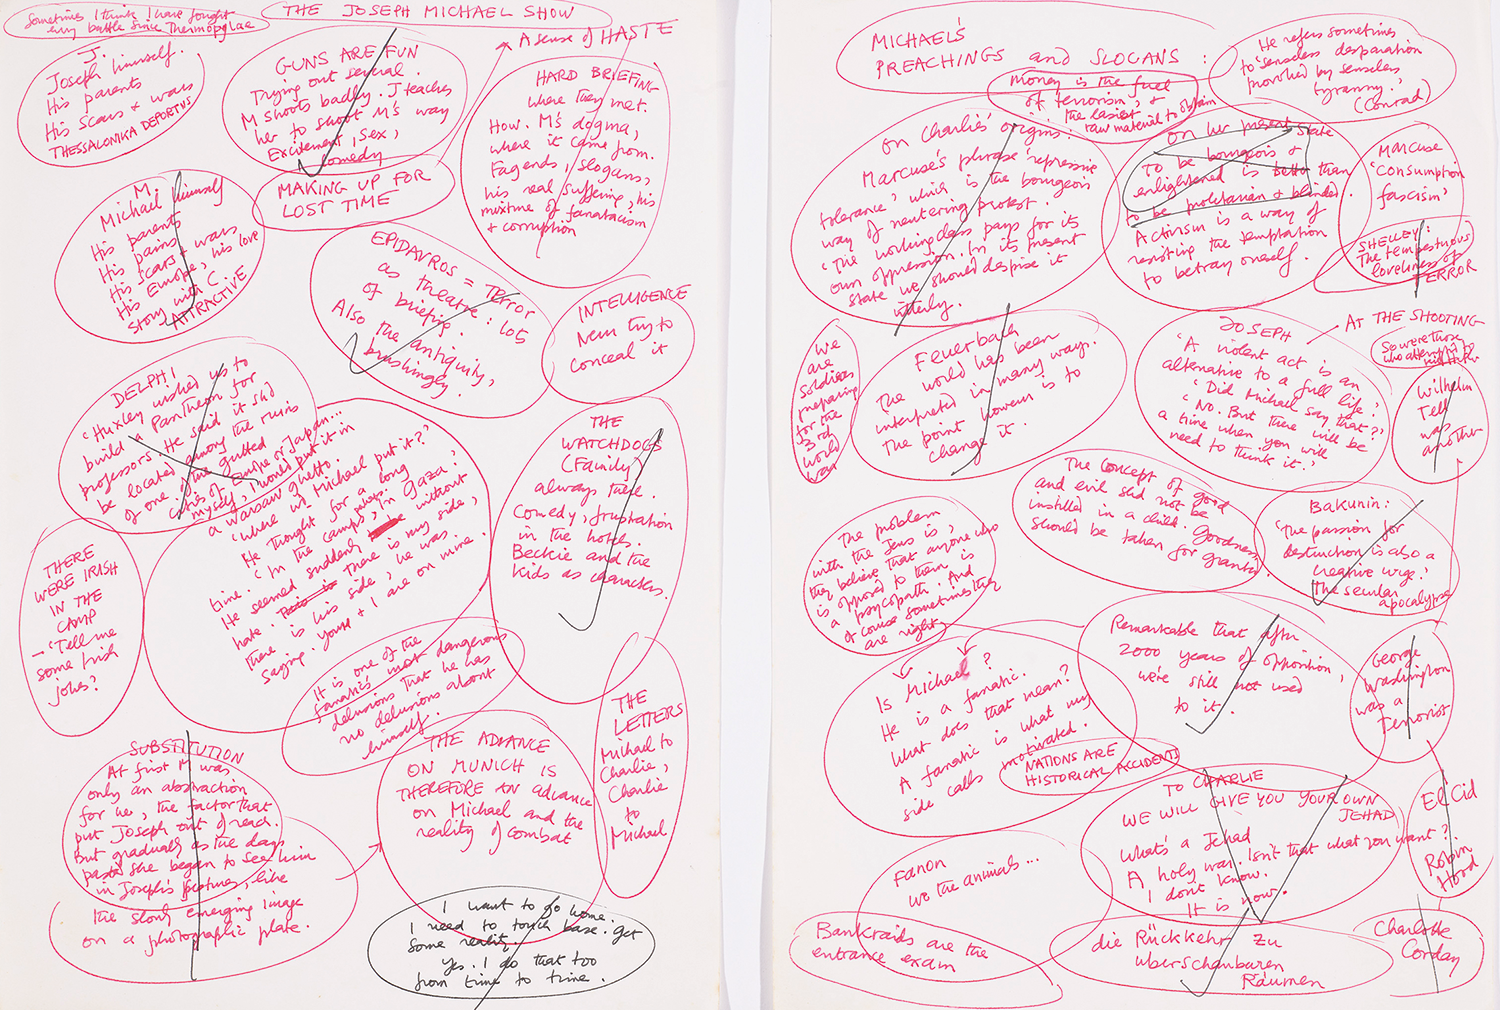 Sometimes I think I have fought
every battle since Thermopylae
THE JOSEPH MICHAEL SHOW
A sense of HASTE
J.
Joseph himself.
His parents
His scars + wars
THESSALONIKA DEPORTUS
GUNS ARE FUN
Trying out several.
M shoots badly. J teaches
her to shoot M's way
Excitement, sex,
comedy
HARD BRIEFING
where they met.
How. M's dogma,
where it came from.
Fagends, slogans,
his real suffering, his
mixture of fanaticism
+ corruption
M.
Michael himself
His parents
His pains
His scars + wars
His Europe, his love
story with C
ATTRACTIVE
MAKING UP FOR
LOST TIME
EPIDAVROS = Terror
as theatre: lots
of briefing.
Also the antiquity,
brushingly.
INTELLIGENCE
Never try to
conceal it
DELPHI
'Huxley wished us to
build a Pantheon for
professors. He said it shd
be located among the ruins
of one of the gutted
cities of Europe or Japan...
myself, I would put it in
a Warsaw ghetto.
'Where wd Michael put it?'
He thought for a long
time.
'In the camps, perhaps. In Gaza.'
He seemed suddenly without
hate. There is my side,
there is his side, he was
saying. You + I are on mine.
THE
WATCHDOGS
(Family)
always there.
Comedy, frustration
in the hotels.
Beckie and the
kids as characters.
THERE
WERE IRISH
IN THE
CAMP
- 'Tell me
some Irish
jokes?'
It is one of the
fanatics' most dangerous
delusions that he has
no delusions about
himself.
THE
LETTERS
Michael to
Charlie,
Charlie
to
Michael
SUBSTITUTION
At first M was
only an abstraction
for her, the factor that
put Joseph out of reach.
But gradually as the days
pass she began to see him
in Joseph's features, like
the slowly emerging image
on a photographic plate.
THE ADVANCE
ON MUNICH IS
THEREFORE AN advance
on Michael and the
reality of combat
I want to go home.
I need to touch base. get
some reality.
Yes. I do that too
from time to time.
MICHAEL'S
PREACHINGS and SLOGANS:
He refers sometimes
to 'senseless desperation
provoked by senseless
tyranny.'
(Conrad)
Money is the fuel
of terrorism, +
the easiest
raw material to obtain
On Charlie's origins:
Marcuse's phrase 'repressive
tolerance' which is the bourgeois
way of neutering protest.
'The working class pays for its
own oppression. In its present
state we should despise it
utterly.
On her present state
To be bourgeois +
enlightened is better than
to be proletarian + blinded.
Activism is a way of
resisting the temptation
to betray oneself.
Marcuse
'Consumption
fascism'
SHELLEY:
The tempestuous
loveliness of
TERROR
We
are
soldiers
preparing
for the
3rd
World
War
Feuerbach
The world has been
interpreted in many ways.
The point however is to
change it.
JOSEPH
AT THE SHOOTING
'A violent act is an
alternative to a full life.'
'Did Michael say that?'
'No. But there will be
a time when you will
need to think it.'
So were those
who attempted to
kill Hitler.
Wilhelm
Tell
was
another
The concept of good
and evil shd not be
instilled in a child. Goodness
should be taken for granted
Bakunin:
'The passion for
destruction is also a
creative urge.'
The secular
apocalypse
The problem
with the Jews is,
they believe that anyone who
is opposed to them is
a psycopath. And
of course sometimes they
are right
Is Michael?
He is a fanatic.
What does that mean?
A fanatic is what my
side calls motivated.
Remarkable that after
2000 years of opposition,
we're still not used
to it.
George
Washington
was a
Terrorist
NATIONS ARE
HISTORICAL ACCIDENTS
TO CHARLIE
WE WILL GIVE YOU YOUR OWN
JEHAD
What's a Jehad
A holy war. Isn't that what you want?
I don't know.
It is now.
El Cid
Robin
Hood
Fanon
We the animals...
Bankraids are the
entrance exam
die Rückkehr zu
uberschaubaren
Räumen
Charlotte
Corday